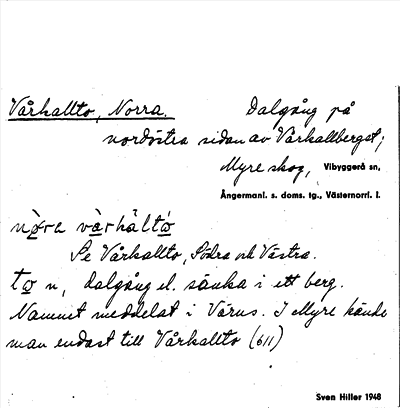 Vårkallto, Norra. Dalgång på
nordöstra sidan av Vårkallberget;
Myre skog, Vibyggerå sn,
Ångermanl. s. doms. tg., Västernorrl. l.
nọ̀ra vàrhàltọ́
Se Vårkallto, Södra och Västra.
tọ n, dalgång el. sänka i ett berg.
Namnet meddelat i Värns. I Myre kände
man endast till Vårkallto (611)
Sven Hiller 1948